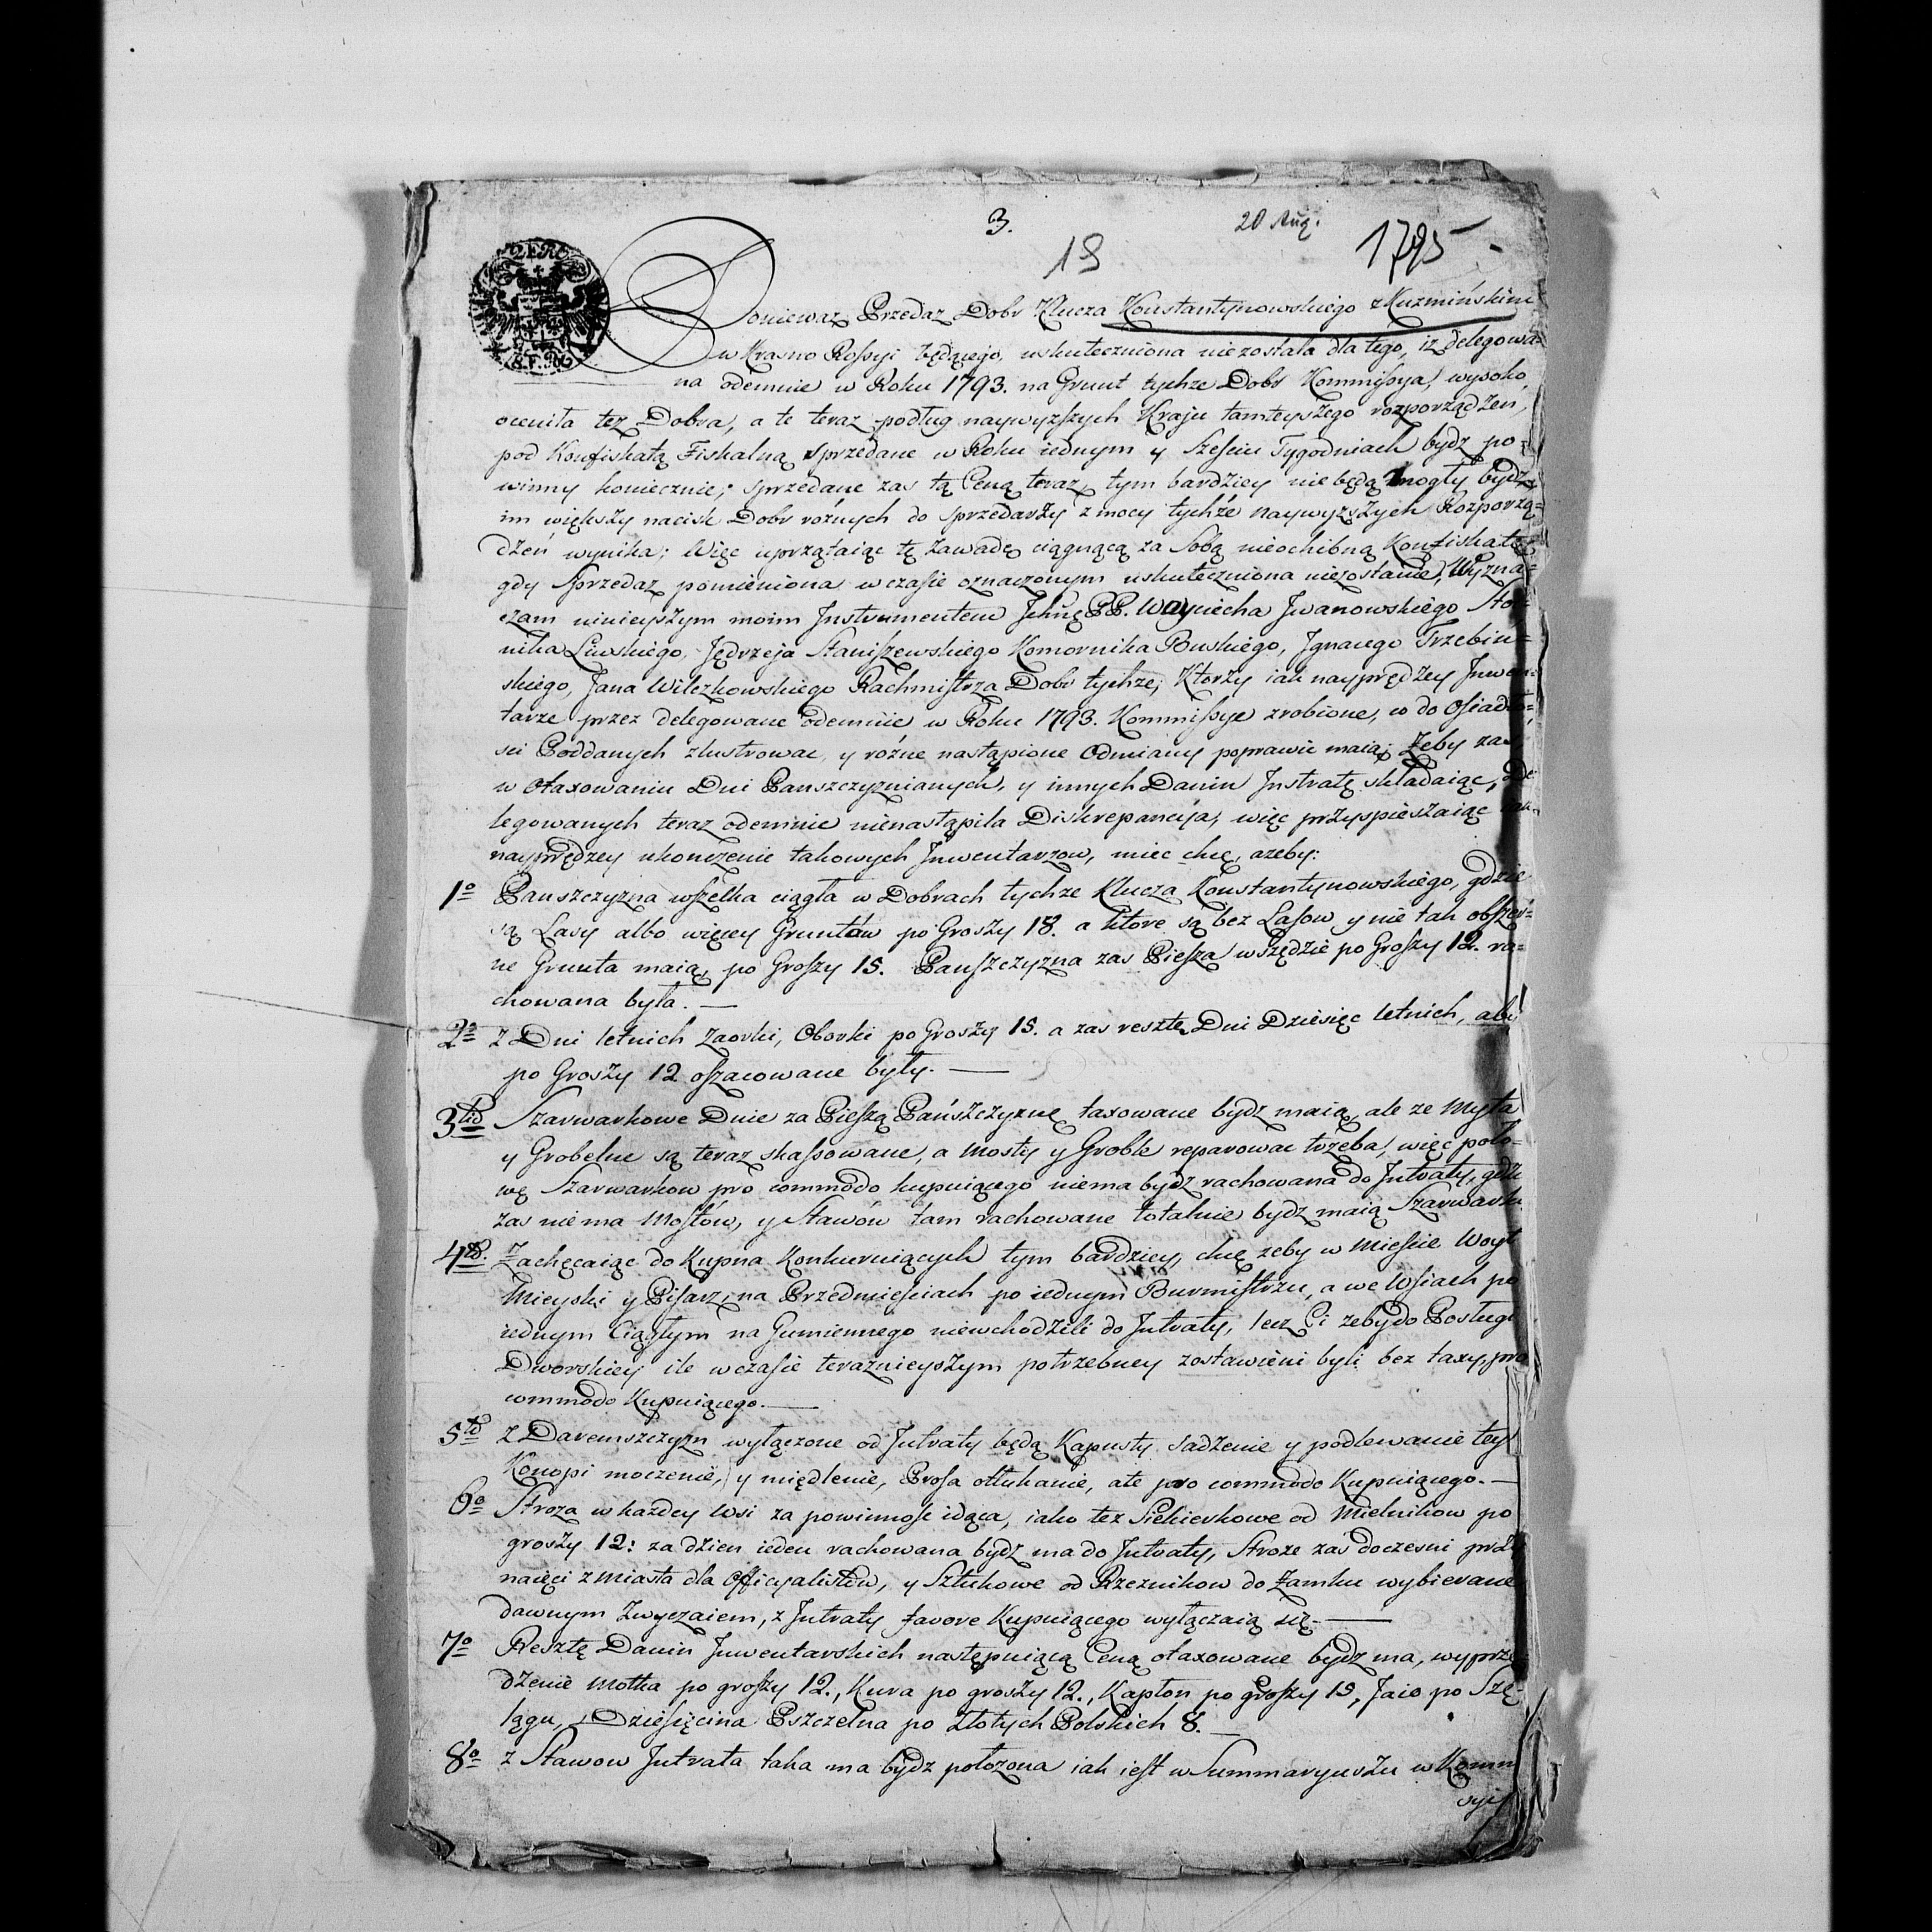 3.
20 Aug.
18
1795
Poniewaz Przedaz Dobr Klucza Konstantynowskiego z Kuzmińskim
w Krasno Rossyi będącego, uskuteczniona niezostala dla tego, iz delegowa=
na odemnie w Roku 1793. na Grunt tychze Dobr Kommissya, wysoko
oceniła tez Dobra, a te teraz podług naywyzszych Kraju tamteyszego rozporządzeń,
pod Konfiskatą Fiskalną sprzedane w Roku iednym y Sześciu Tygodniach bydz po=
winny koniecznie; sprzedane zas tą Ceną teraz, tym bardziey nie będą mogły bydz,
im większy nacisk Dobr roznych do sprzedarzy z mocy tychże naywyzszych Rozporzą=
dzeń wynika; Więc uprzątaiąc tę zawadę ciągnącą za Sobą nieochibną Konfiskatę
gdy Sprzedaz pomieniona w czasie oznaczonym uskuteczniona niezostanie, Wyzna=
czam ninieyszym moim Instrumentem Jchmę PP. Woyciecha Jwanowskiego Stol=
nika Liwskiego, Jędrzeja Staniszewskiego Komornika Buskiego, Jgnacego Trzebin=
skiego, Jana Wilczkowskiego Rachmistrza Dobr tychze, Ktorzy iak nayprędzey Jnwen=
tarze przez delegowane odemnie w Roku 1793. Kommissye zrobione, co do Osiadło=
sci Poddanych zlustrowac, y rożne nastąpione Odmiany poprawic maią; Zeby zas
w otaxowaniu Dni Panszczyznianych, y innych Danin Jntratę składaiąc, De
legowanych teraz odemnie nienastąpiła Diskrepancya, więc przyspieszaiąc iak
nayprędzey ukonczenie takowych Jnwentarzow, miec chcę, azeby:
1o Panszczyzna wszelka ciągła w Dobrach tychze Klucza Konstantynowskiego, gdzie
są Lasy albo więcey Gruntów po Groszy 18. a ktore są bez Lasow y nie tak obszer=
ne Grunta maią, po Groszy 15. Panszczyzna zas Piesza wszędzie po Groszy 12. ra=
chowana była.
2o Z Dni letnich Zaorki, Oborki po Groszy 15. a zas resztę Dni Dziesięc letnich, aby
po Groszy 12 oszacowane były.
3tio Szarwarkowe Dnie za Pieszą Pańszczyznę taxowane bydz maią, ale ze Myta
y Grobelne są teraz skassowane, a Mosty y Groble reparowac trzeba, więc poło=
wę Szarwarkow pro commodo kupuiącego niema bydz rachowana do Jntraty, gdzie
zas niema Mostów, y Stawów tam rachowane totalnie bydz maią Szarwarki
4to. Zachęcaiąc do Kupna Konkuruiących tym bardziey, chcę zeby w Mieście Woyt
Mieyski y Pisarz, na Przedmiesciach po iednym Burmistrzu, a we Wsiach po
iednym Ciągłym na Gumiennego niewchodzili do Jntraty, lecz Ci zeby do Posługi
Dworskiey ile w czasie teraznieyszym potrzebney zostawieni byli bez taxy, pro
commodo Kupuiącego.
5to Z Daremszczyzn wyłączone od Jntraty będą Kapusty sadzenie y podlewanie tey,
Konopi moczenie, y międlenie, Prosa otłukanie, ale pro commodo Kupuiącego.
6o Stroza w kazdey Wsi za powinnosc idąca, iako tez Siekierkowe od Mielnikow po
groszy 12: za dzien ieden rachowana bydz ma do Jntraty, Stroze zas doczesni przy
naięci z Miasta dla Officyalistów, y Sztukowe od Rzeznikow do Zamku wybierane
dawnym Zwyczaiem, z Jntraty favore Kupuiącego wyłączaią się.
7o Resztę Danin Jnwentarskich następuiącą Ceną otaxowane bydz ma, wyprzę
dzenie Motka po groszy 12., Kura po groszy 12., Kapłon po groszy 15, Jaie po Szę=
lągu, Dziesięcina Pszczelna po Złotych Polskich 8.
8o z Stawow Jntrata taka ma bydz położona iak iest w Summaryuszu w Kommi
syi